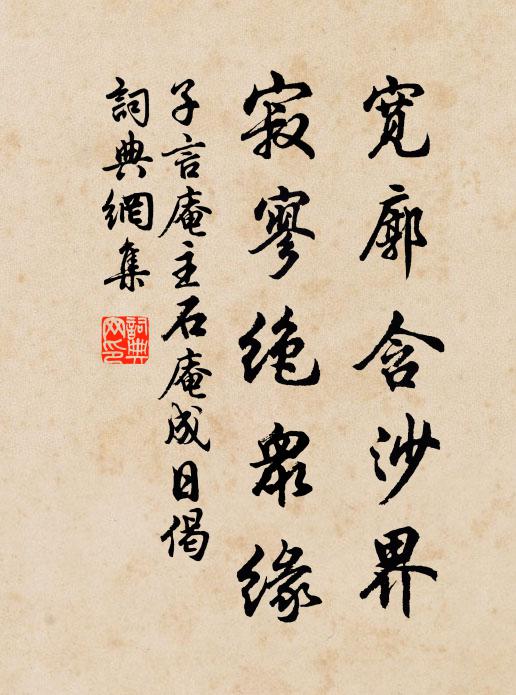 寬廓含沙界
寂寥絶衆緣
子言庵主石庵成日偈
詞典網集
詞典
网印